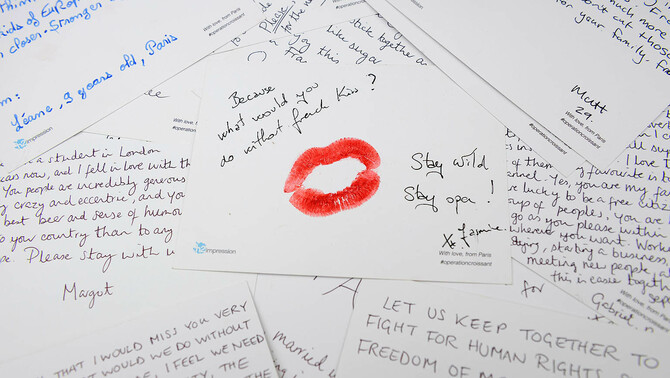 think
aids of EuRope
n closer. Stronger
m:
Léane, 9 years old, Paris
impression
With love, from Paris
#operationcroissant
Please
for the
say this
Like sugar
stick together a
for your family. Fra
Matt
29.
With love, from Paris
#operationcroissant
Because
what would you
do without french kiss ?
Stay wild
Stay open !
Jasmine
xx
impression
With love, from Paris
#operationcroissant
a student in London
cans now, and I fell in love with th
You people are incredibly generous
g crazy and eccentric, and you
best beer and sense of humou
o your country than to any
e. Please stay with u
Margot
favourite is b
Yes, you are my fa
lucky to be a free citiz
up of peoples. You are
go as you please within
wherever you want. Work
starting a business,
meeting new people, a
this is easier together
for
Gabriel
THAT I WOULD MISS YOU VERY
AT WOULD WE DO WITHOUT
E, I FEEL WE NEED
TY, THE
married
LET US KEEP TOGETHER TO
FIGHT FOR HUMAN RIGHTS &
FREEDOM OF M